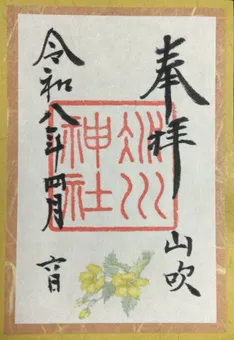 奉拝
山吹
氷川
神社
令和八年四月
六日